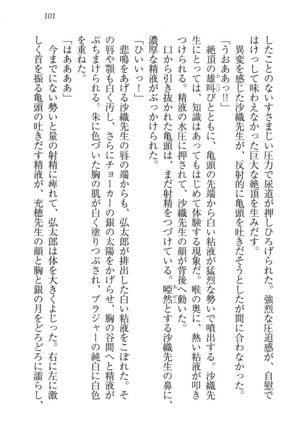 101
ことのないすさまじい圧力で尿道が押しひろげられた。強烈な圧迫感が、自慰で
はけっして味わえなかった巨大な絶頂を生みだす。
異変を感じた沙織先生が、反射的に亀頭を吐きだそうとしたが間に合わなかった。
「うおああっ!!」
絶頂の雄叫びとともに、亀頭の先端から白い粘液が猛烈な勢いで噴出する。沙織先
生にとっては、知識はあってもはじめて体験する現象だ。喉の奥に、熱い粘液が叩き
つけられる。精液の水圧に押されて、沙織先生の顔が背後へ動いた。
口から引き抜かれた亀頭は、まだ射精をつづけている。啞然とする沙織先生の鼻に、
濃厚な精液がぶつけられた。
「ひいいっ!」
悲鳴をあげる沙織先生の唇の端からも、弘太郎が排出した白い粘液がこぼれた。そ
の唇や顎も白く汚し、さらにチョーカーの銀の太陽をかげらせ、胸の谷間へと精液が
ぶちまけられる。朱に色づいた胸の肌が白く塗りつぶされ、ブラジャーの純白に白色
を重ねた。
「はああああ」
今までにない勢いと量の射精に痺れて、弘太郎は体を大きくよじった。右に左に激
しく首を振る亀頭の吐きだす精液が、充穂先生の顔と胸と銀の月をどろどろに濡らし、